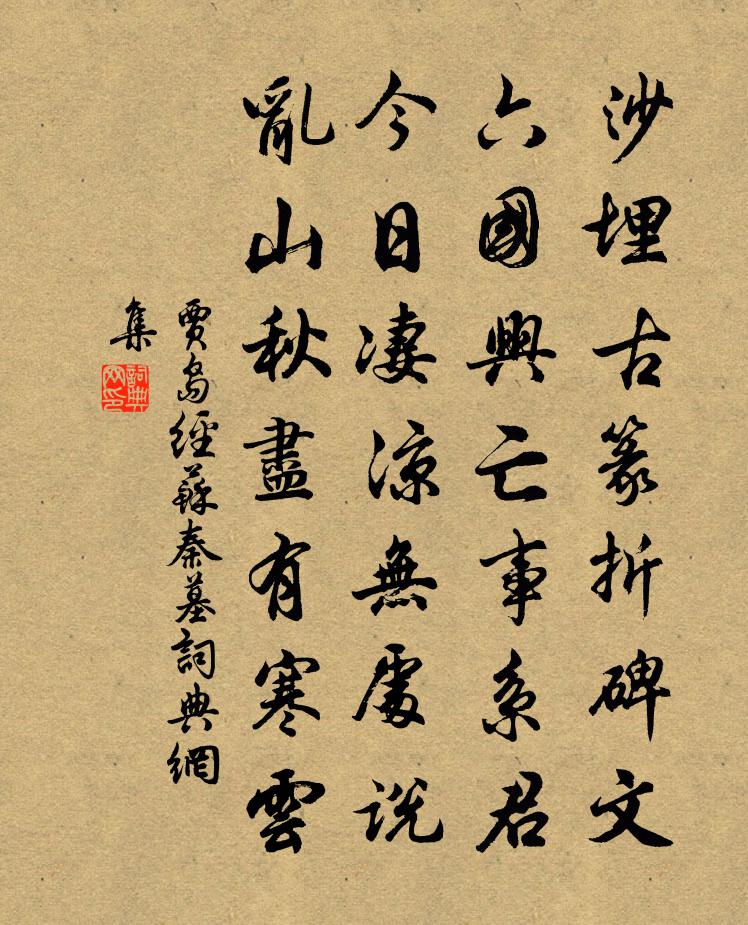 沙埋古篆折碑文
六國興亡事系君
今日凄凉無處説
亂山秋盡有寒雲
賈島經蘇秦墓詞典網
集
詞典
网印